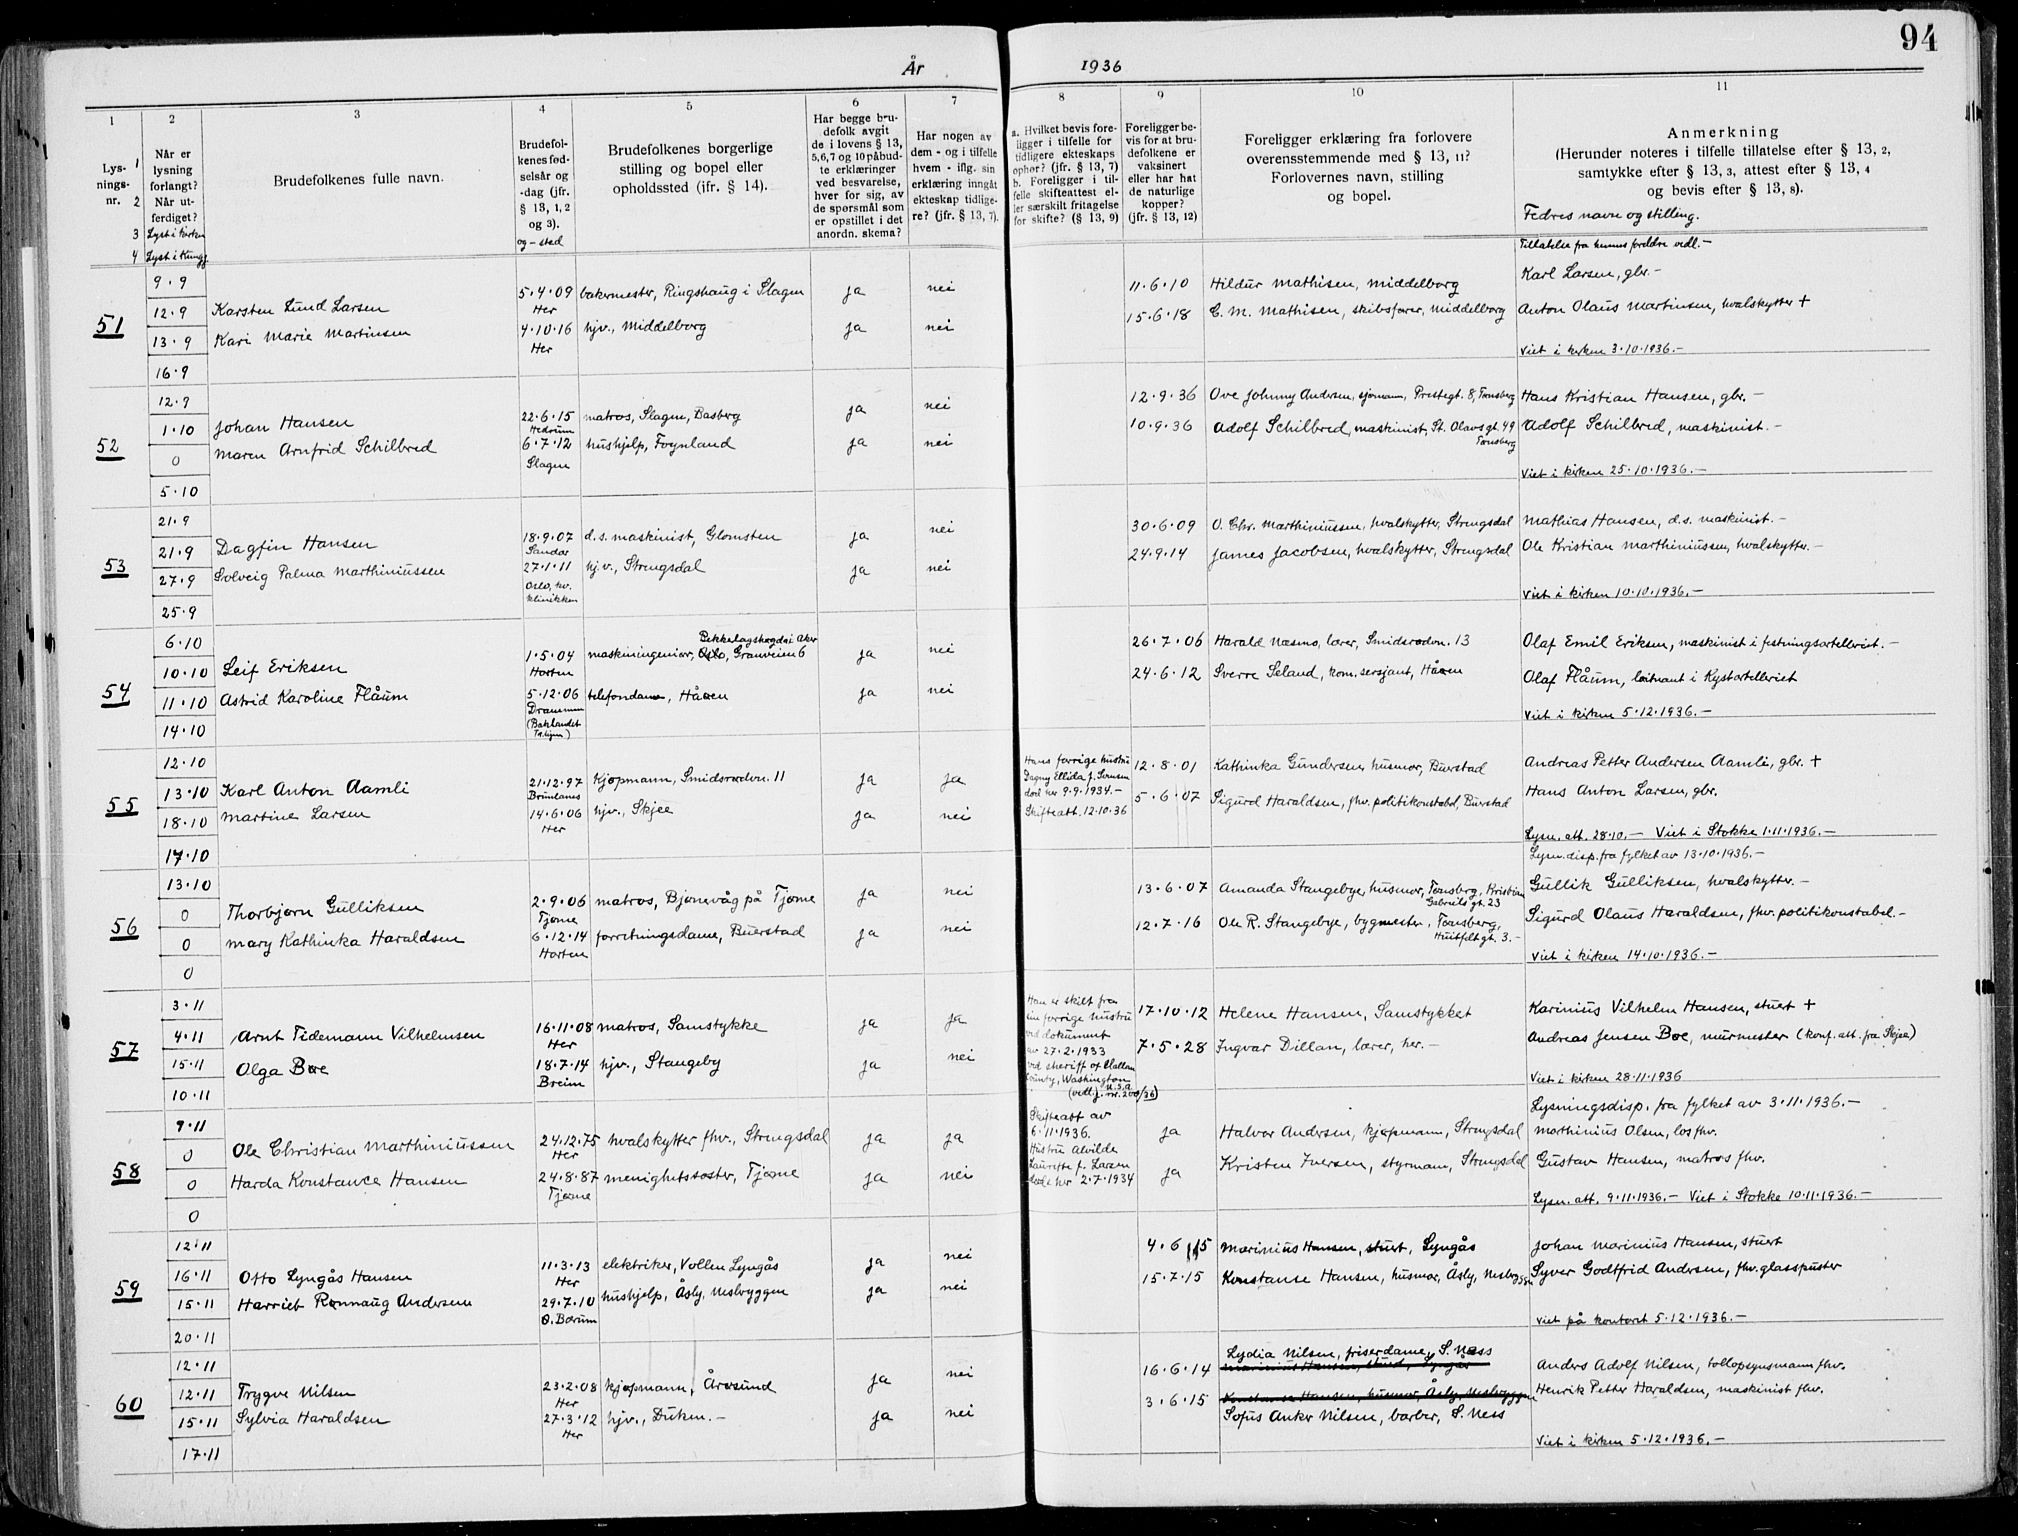 94
År 1936
1
2
3
4
5
6
7
8
9
10
11
Lys-
nings-
nr.
1
2
3
4
Når er
lysning
forlangt?
Når ut-
ferdiget?
Lyst i kirken
Lyst i Kungj.
Brudefolkenes fulle navn.
Brudefol-
kenes fød-
selsår og
-dag (jfr.
§ 13, 1, 2
og 3).
og - sted
Brudefolkenes borgerlige
stilling og bopel eller
opholdssted (jfr. § 14).
Har begge bru-
defolk avgit
de i lovens § 13,
5, 6, 7 og 10 påbud-
te erklæringer
ved besvarelse,
hver for sig, av
de spørsmål som
er opstillet i det
anordn. skema?
Har nogen av
dem - og i tilfelle
hvem - iflg. sin
erklæring inngåt
ekteskap tidlige-
re? (jfr. § 13, 7).
a. Hvilket bevis fore-
ligger i tilfelle for
tidligere ekteskaps
ophør? (jfr. § 13, 7)
b. Foreligger i til-
felle skifteattest el-
ler særskilt fritagelse
for skifte? (§ 13, 9)
Foreligger be-
vis for at bru-
defolkene er
vaksinert
eller har hat
de naturlige
kopper?
(jfr. § 13, 12)
Foreligger erklæring fra forlovere
overensstemmende med § 13, 11?
Forlovernes navn, stilling
og bopel.
Anmerkning
(Herunder noteres i tilfelle tillatelse efter § 13, 2,
samtykke efter § 13, 3, attest efter § 13, 4
og bevis efter § 13, 8).
Fedres navn og stilling.
51
9.9
12.9
13.9
16.9
Karsten Lund Larsen
Kari Marie Martinsen
5.4.09
Her
4.10.16
Her
bakermester, Ringshaug i Slagen
hjv., Middelborg
ja
ja
nei
nei
11.6.10
15.6.18
Hildur Mathisen, Middelborg
C. M. Mathisen, skibsfører, Middelborg
Tillatelse fra hennes foreldre vedl.-
Karl Larsen, gbr.-
Anton Olaus Martinsen, hvalskytter +
Viet i kirken 3.10.1936.-
52
12.9
1.10
0
5.10
Johan Hansen
Maren Arnfrid Schilbred
22.6.15
Hedrum
6.7.12
Slagen
matros, Slagen, Basberg
hushjelp, Føynland
ja
ja
nei
nei
12.9.36
10.9.36
Ove Johnny Andersen, sjømann, Prestegt. 8, Tønsberg
Adolf Schilbred, maskinist, St. Olavs gt. 49
Tønsberg
Hans Kristian Hansen, gbr.-
Adolf Schilbred, maskinist.-
Viet i kirken 25.10.1936.-
53
21.9
21.9
27.9
25.9
Dagfin Hansen
Solveig Palma Marthiniussen
18.9.07
Sandar
27.1.11
Oslo, kv.
klinikken
d.s. maskinist, Glomsten
hj.v., Strengsdal
ja
ja
nei
nei
30.6.09
24.9.14
O. Chr. Marthiniussen, hvalskytter, Strengsdal
James Jacobsen, hvalskytter, Strengsdal
Mathias Hansen, d.s. maskinist.-
Ole Kristian Marthiniussen, hvalskytter.-
Viet i kirken 10.10.1936.-
54
6.10
10.10
11.10
14.10
Leif Eriksen
Astrid Karoline Flåum
1.5.04
Horten
5.12.06
Drammen
(Baklandet
Bekkelagshøgda i Aker
maskiningeniør, Oslo, Granveien 6
telefondame, Håøen
ja
ja
nei
nei
26.7.06
24.6.12
Harald Næsmo, lærer, Smidsrødvn. 13
Sverre Seland, kom. sersjant, Håøen
Olaf Emil Eriksen, maskinist i festningsartelleriet.-
Olaf Flåum, løitnant i Kystartelleriet
Viet i kirken 5.12.1936.-
55
12.10
13.10
18.10
17.10
Karl Anton Aamli
Martine Larsen
21.12.97
Brunlanes
14.6.06
Her
kjøpmann, Smidsrødvn. 11
hjv., Skjee
ja
ja
ja
nei
Hans forrige hustru
Dagny Ellida f. Sørensen
død her 9.9.1934.-
Skifteatt. 12.10.36
12.8.01
5.6.07
Kathinka Gundersen, husmor, Buerstad
Sigurd Haraldsen, fhv. politikonstabel, Buerstad
Andreas Petter Andersen Aamli, gbr. +
Hans Anton Larsen, gbr.
Lysn. att. 28.10.- Viet i Stokke 1.11.1936.-
56
13.10
0
0
0
Thorbjørn Gulliksen
Mary Kathinka Haraldsen
2.9.06
Tjøme
6.12.14
Horten
matros, Bjønevåg på Tjøme
forretningsdame, Buerstad
ja
ja
nei
nei
13.6.07
12.7.16
Amanda Stangebye, husmor, Tønsberg, Kristian
Gabriels gt. 23
Ole R. Stangebye, bygmester, Tønsberg,
Huitfelt gt. 3.-
Lysn. disp. fra fylket av 13.10.1936.-
Gullik Gulliksen, hvalskytter.-
Sigurd Olaus Haraldsen, fhv. politikonstabel.-
Viet i kirken 14.10.1936.-
57
3.11
4.11
15.11
10.11
Arnt Tidemann Vilhelmsen
Olga Bøe
16.11.08
Her
18.7.14
Breim
matros, Sømstykke
hjv., Stangeby
ja
ja
ja
nei
Han er skilt fra
sin forrige hustru
ved dokument
av 27.2.1933
ved sheriff of Clallam
County, Washington
U.S.A
(vedl. j. nr. 200/36)
17.10.12
7.5.28
Helene Hansen, Sømstykket
Ingvar Dillan, lærer, her.-
Karinius Vilhelm Hansen, stuert +
Andreas Jensen Bøe, murmester (konf. att. fra Skjee)
Viet i kirken 28.11.1936
58
9.11
0
0
0
Ole Christian Marthiniussen
Harda Konstance Hansen
24.12.75
Her
24.8.87
Tjøme
hvalskytter fhv., Strengsdal
menighetssøster, Tjøme
ja
ja
ja
nei
Skifteatt av
6.11.1936.
Hustru Alvilde
Laurette f. Larsen
døde her 2.7.1934
ja
ja
Halvor Andersen, kjøpmann, Strengsdal
Kristen Iversen, styrmann, Strengsdal
Lysningsdisp. fra fylket av 3.11.1936.-
Marthinius Olsen, los fhv.
Gustav Hansen, matros fhv.
Lysn. att. 9.11.1936.- Viet i Stokke 10.11.1936.-
59
12.11
16.11
15.11
20.11
Otto Lyngås Hansen
Harriet Rønnaug Andersen
11.3.13
Her
29.7.10
Ø. Bærum
elektriker, Vollen Lyngås
hushjelp, Åsly, Nesbryggen
ja
ja
nei
nei
4.6.15
15.7.15
Marinius Hansen, stuert, Lyngås
Konstanse Hansen, husmor, Åsly, Nesbryggen
Johan Marinius Hansen, stuert
Syver Godtfrid Andersen, fhv. glasspuster
Viet på kontoret 5.12.1936.-
60
12.11
12.11
15.11
17.11
Trygve Nilsen
Sylvia Haraldsen
23.2.08
Her
27.3.12
Her
kjøpmann, Årøsund
hjv., Duken.-
ja
ja
nei
nei
16.6.14
3.6.15
Lydia Nilsen, friserdame, S. Ness
Marinius Hansen, stuert, Lyngås
Konstanse Hansen, husmor, Åsly, Nesbryggen
Sofus Anker Nilsen, barber, S. Ness
Anders Adolf Nilsen, tollopsynsmann fhv.
Henrik Petter Haraldsen, maskinist fhv.
Viet i kirken 5.12.1936.-